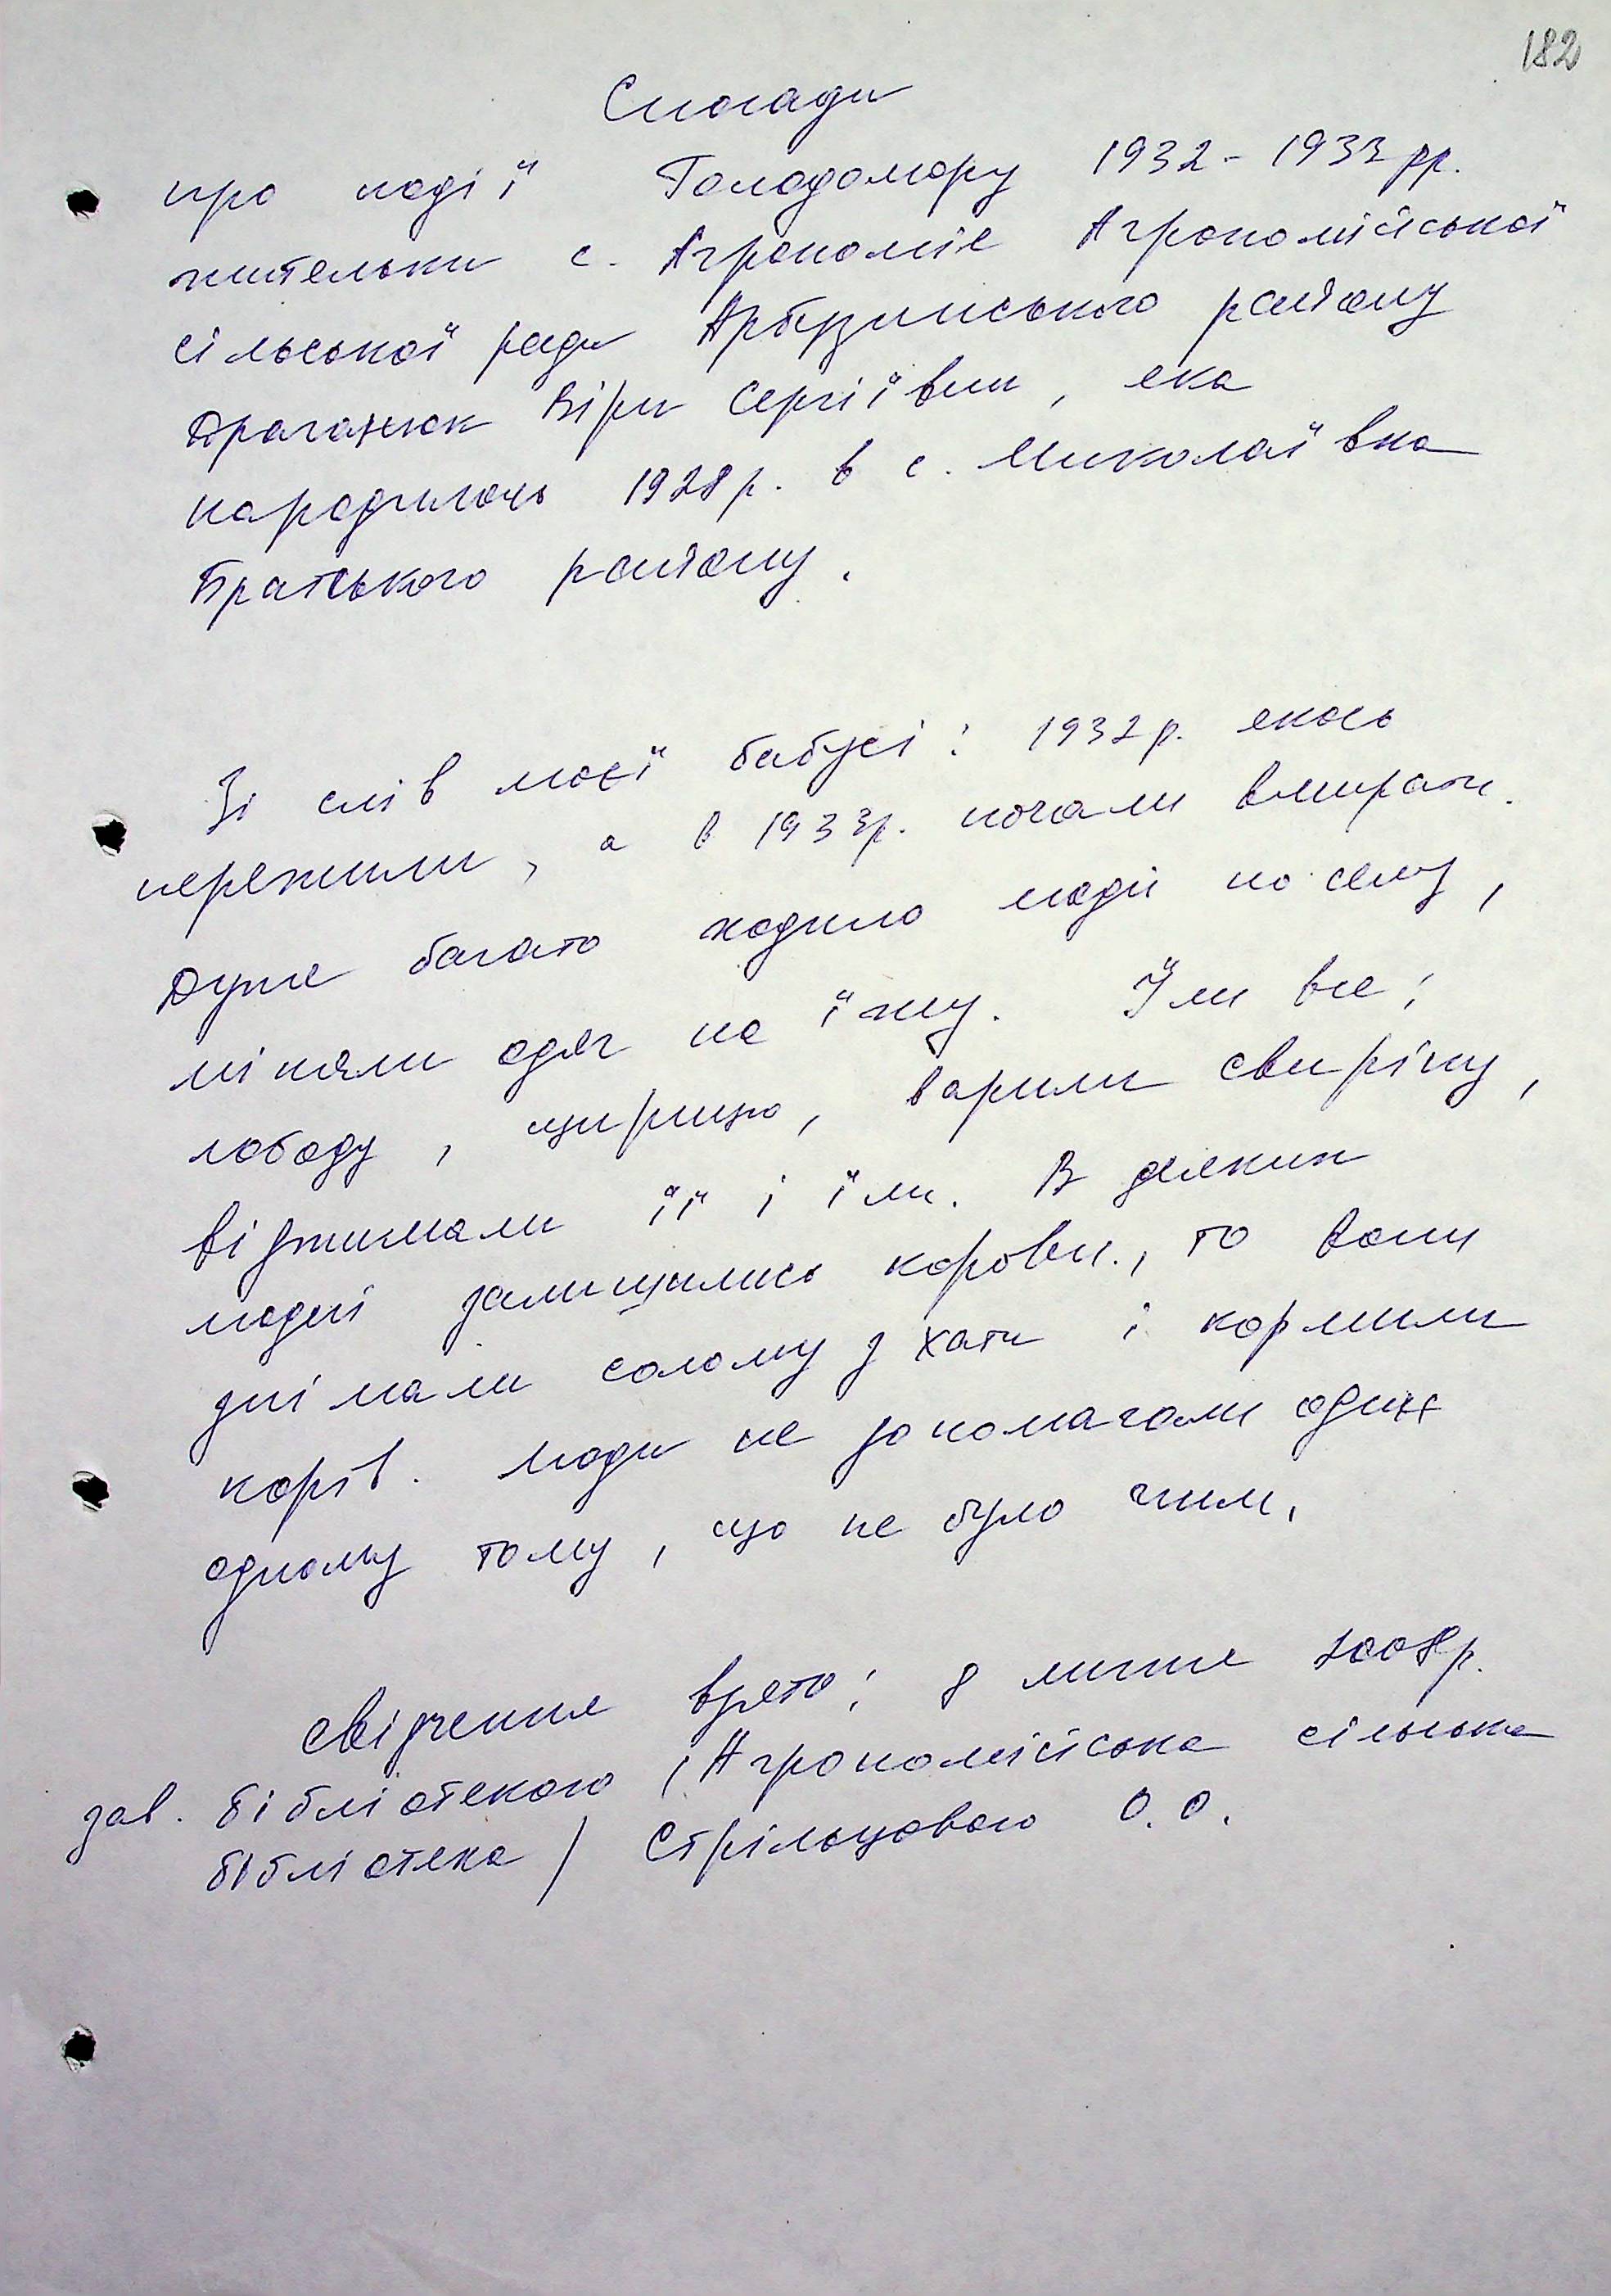 182
Спогади
про події Голодомору 1932-1933 рр.
жительки с. Агрономія Агрономійської
сільської ради Арбузинського району
Драганюк Віри Сергіївни, яка
народилась 1928 р. в с. Миколаївка
Братського району.
Зі слів моєї бабусі: 1932 р. якось
пережили, а в 1933 р. почали вмирати.
Дуже багато ходило людей по селу,
міняли одяг на їжу. Їли все:
лободу, щирицю, варили свиріпу,
віджимали її і їли. В деяких
людей залишились корови, то вони
знімали солому з хати і кормили
корів. Люди не допомагали один
одному тому, що не було чим.
Свідчення взято: 8 липня 2008 р.
зав. бібліотекою /Агрономійська сільська
бібліотека/ Стрільцовою О.О.